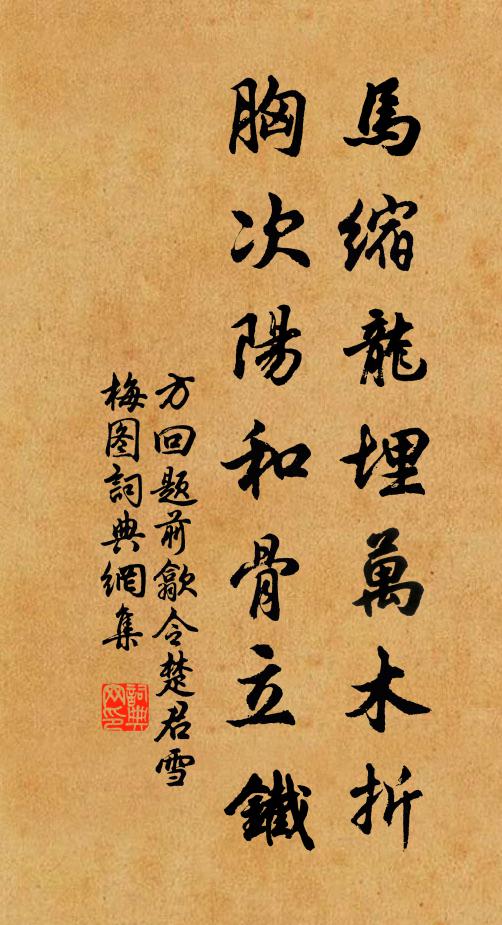 馬縮龍埋萬木折
胸次陽和骨立鐵
方回题前歙令楚君雪
梅图詞典網集
詞典网印